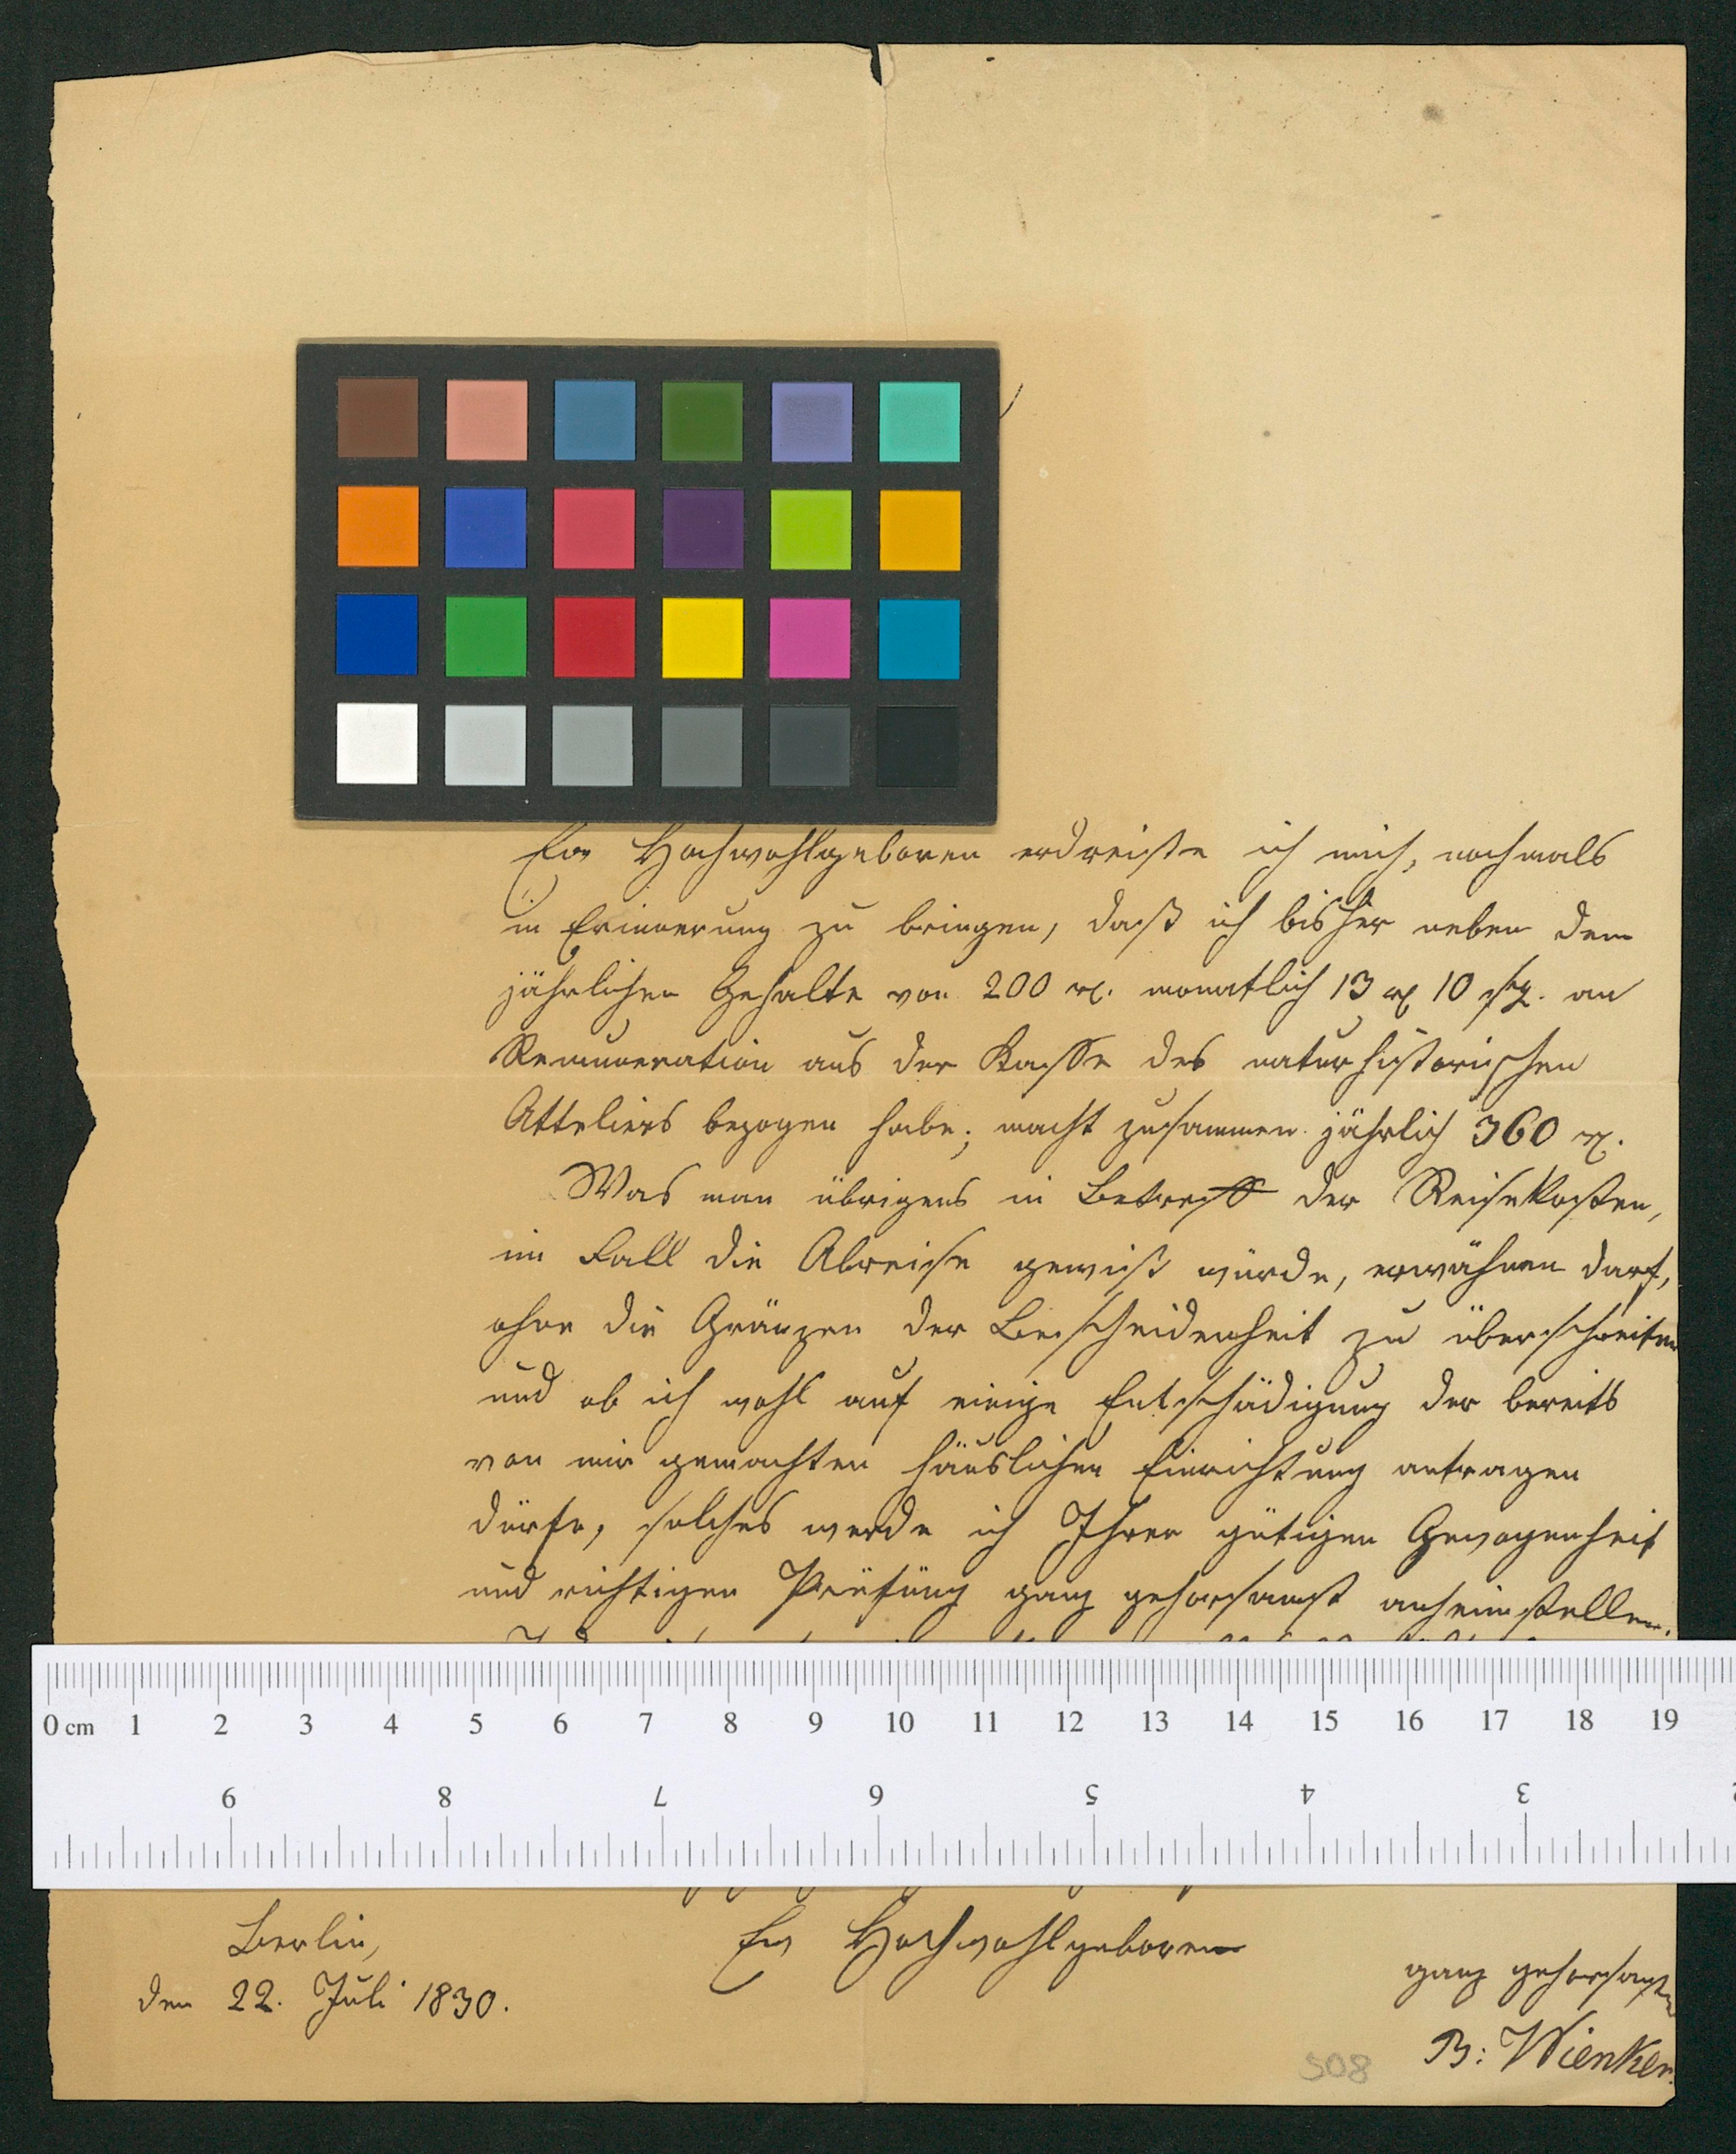 Ew Hochwohlgeboren erdreiste ich mich, nochmals
in Erinnerung zu bringen, daß ich bisher neben dem
jährlichen Gehalte von 200 rℓ. monatlich 13 rℓ 10 sgr. an
Remuneration aus der Kasse des naturhistorischen
Atteliers bezogen habe; macht zusammen jährlich 360 rℓ.
Was man übrigens in Betreff der Reisekosten,
im Fall die Abreise gewiß würde, erwähnen darf,
ohne die Gränzen der Bescheidenheit zu überschreiten
und ob ich wohl auf einige Entschädigung der bereits
von mir gemachten häuslichen Einrichtung antragen
dürfe, solches werde ich Ihrer gütigen Gewogenheit
und richtigen Prüfung ganz gehorsamst anheimstellen.
0 cm 1 2 3 4 5 6 7 8 9 10 11 12 13 14 15 16 17 18 19
9 8 7 6 5 4 3
Berlin,
den 22. Juli 1830.
Ew Hochwohlgeboren
ganz gehorsamster
B: Wienker.
508